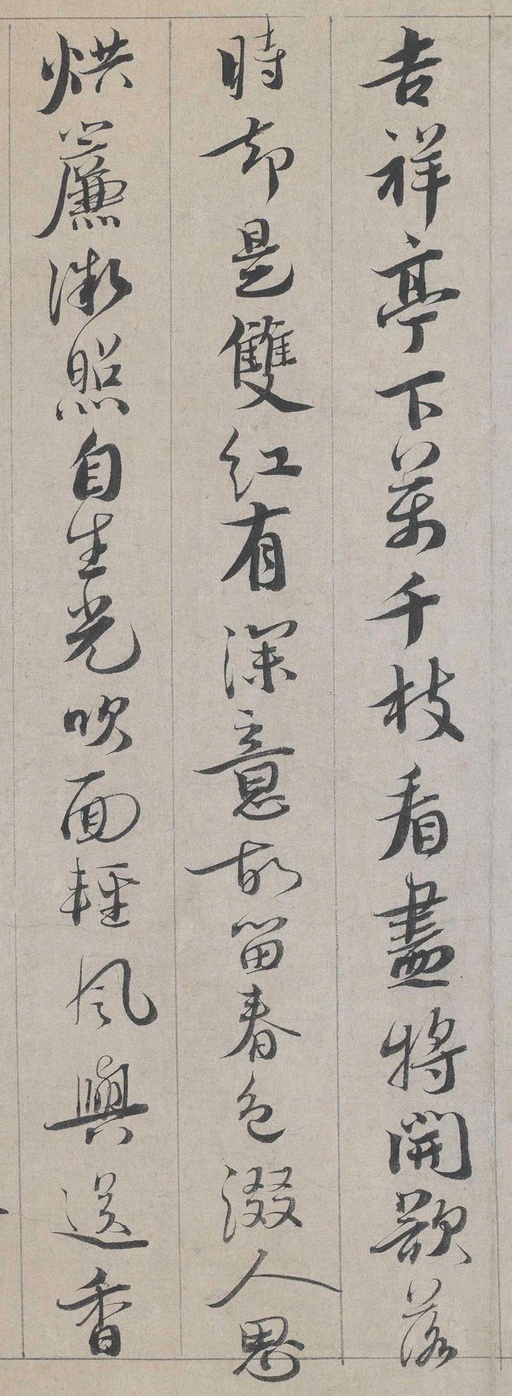 吉祥亭下萬千枝看盡將開欲落
時却是雙紅有深意故留春色綴人思
烘簾微照自生光吹面輕風與送香